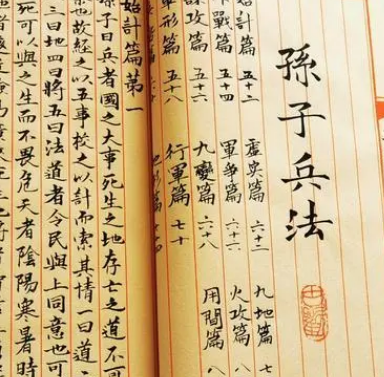 孫子兵法
計篇 五十二
虛實篇 六十二
九地篇 七
戰篇 五十四
軍爭篇 六十
火攻篇 八
謀攻篇 五十六
九變篇 六十八
用間篇 八
軍形篇 五十八
行軍篇 七十
始計篇第一
孫子曰兵者國之大事死生之地存亡之道不
也故經之以五事校之以計而索其情一曰道
三曰地四曰將五曰法道者令民與上同意也可
死可以與之生而不畏危天者陰陽寒暑時